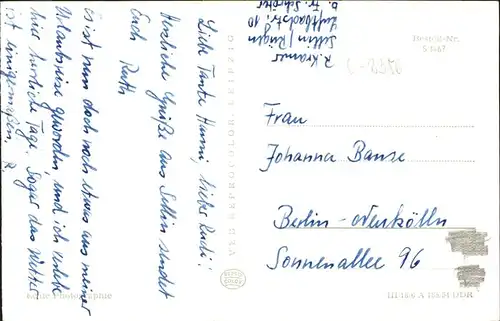 Liebe Tante Hanni, lieber Rudi!
Herzliche Grüße aus Sellin sendet
Euch Ruth
Es ist nun doch noch etwas aus meiner
Urlaubsreise geworden, und ich verlebe
hier herrliche Tage. Sogar das Wetter
ist einigermaßen. R.
R. Kramer
Sellin / Rügen
Luftbadstr. 10
b. Fr. Schröter
Bestell-Nr.
Frau
Johanna Banse
Berlin-Neukölln
Sonnenallee 96
Echte Photographie
DDR